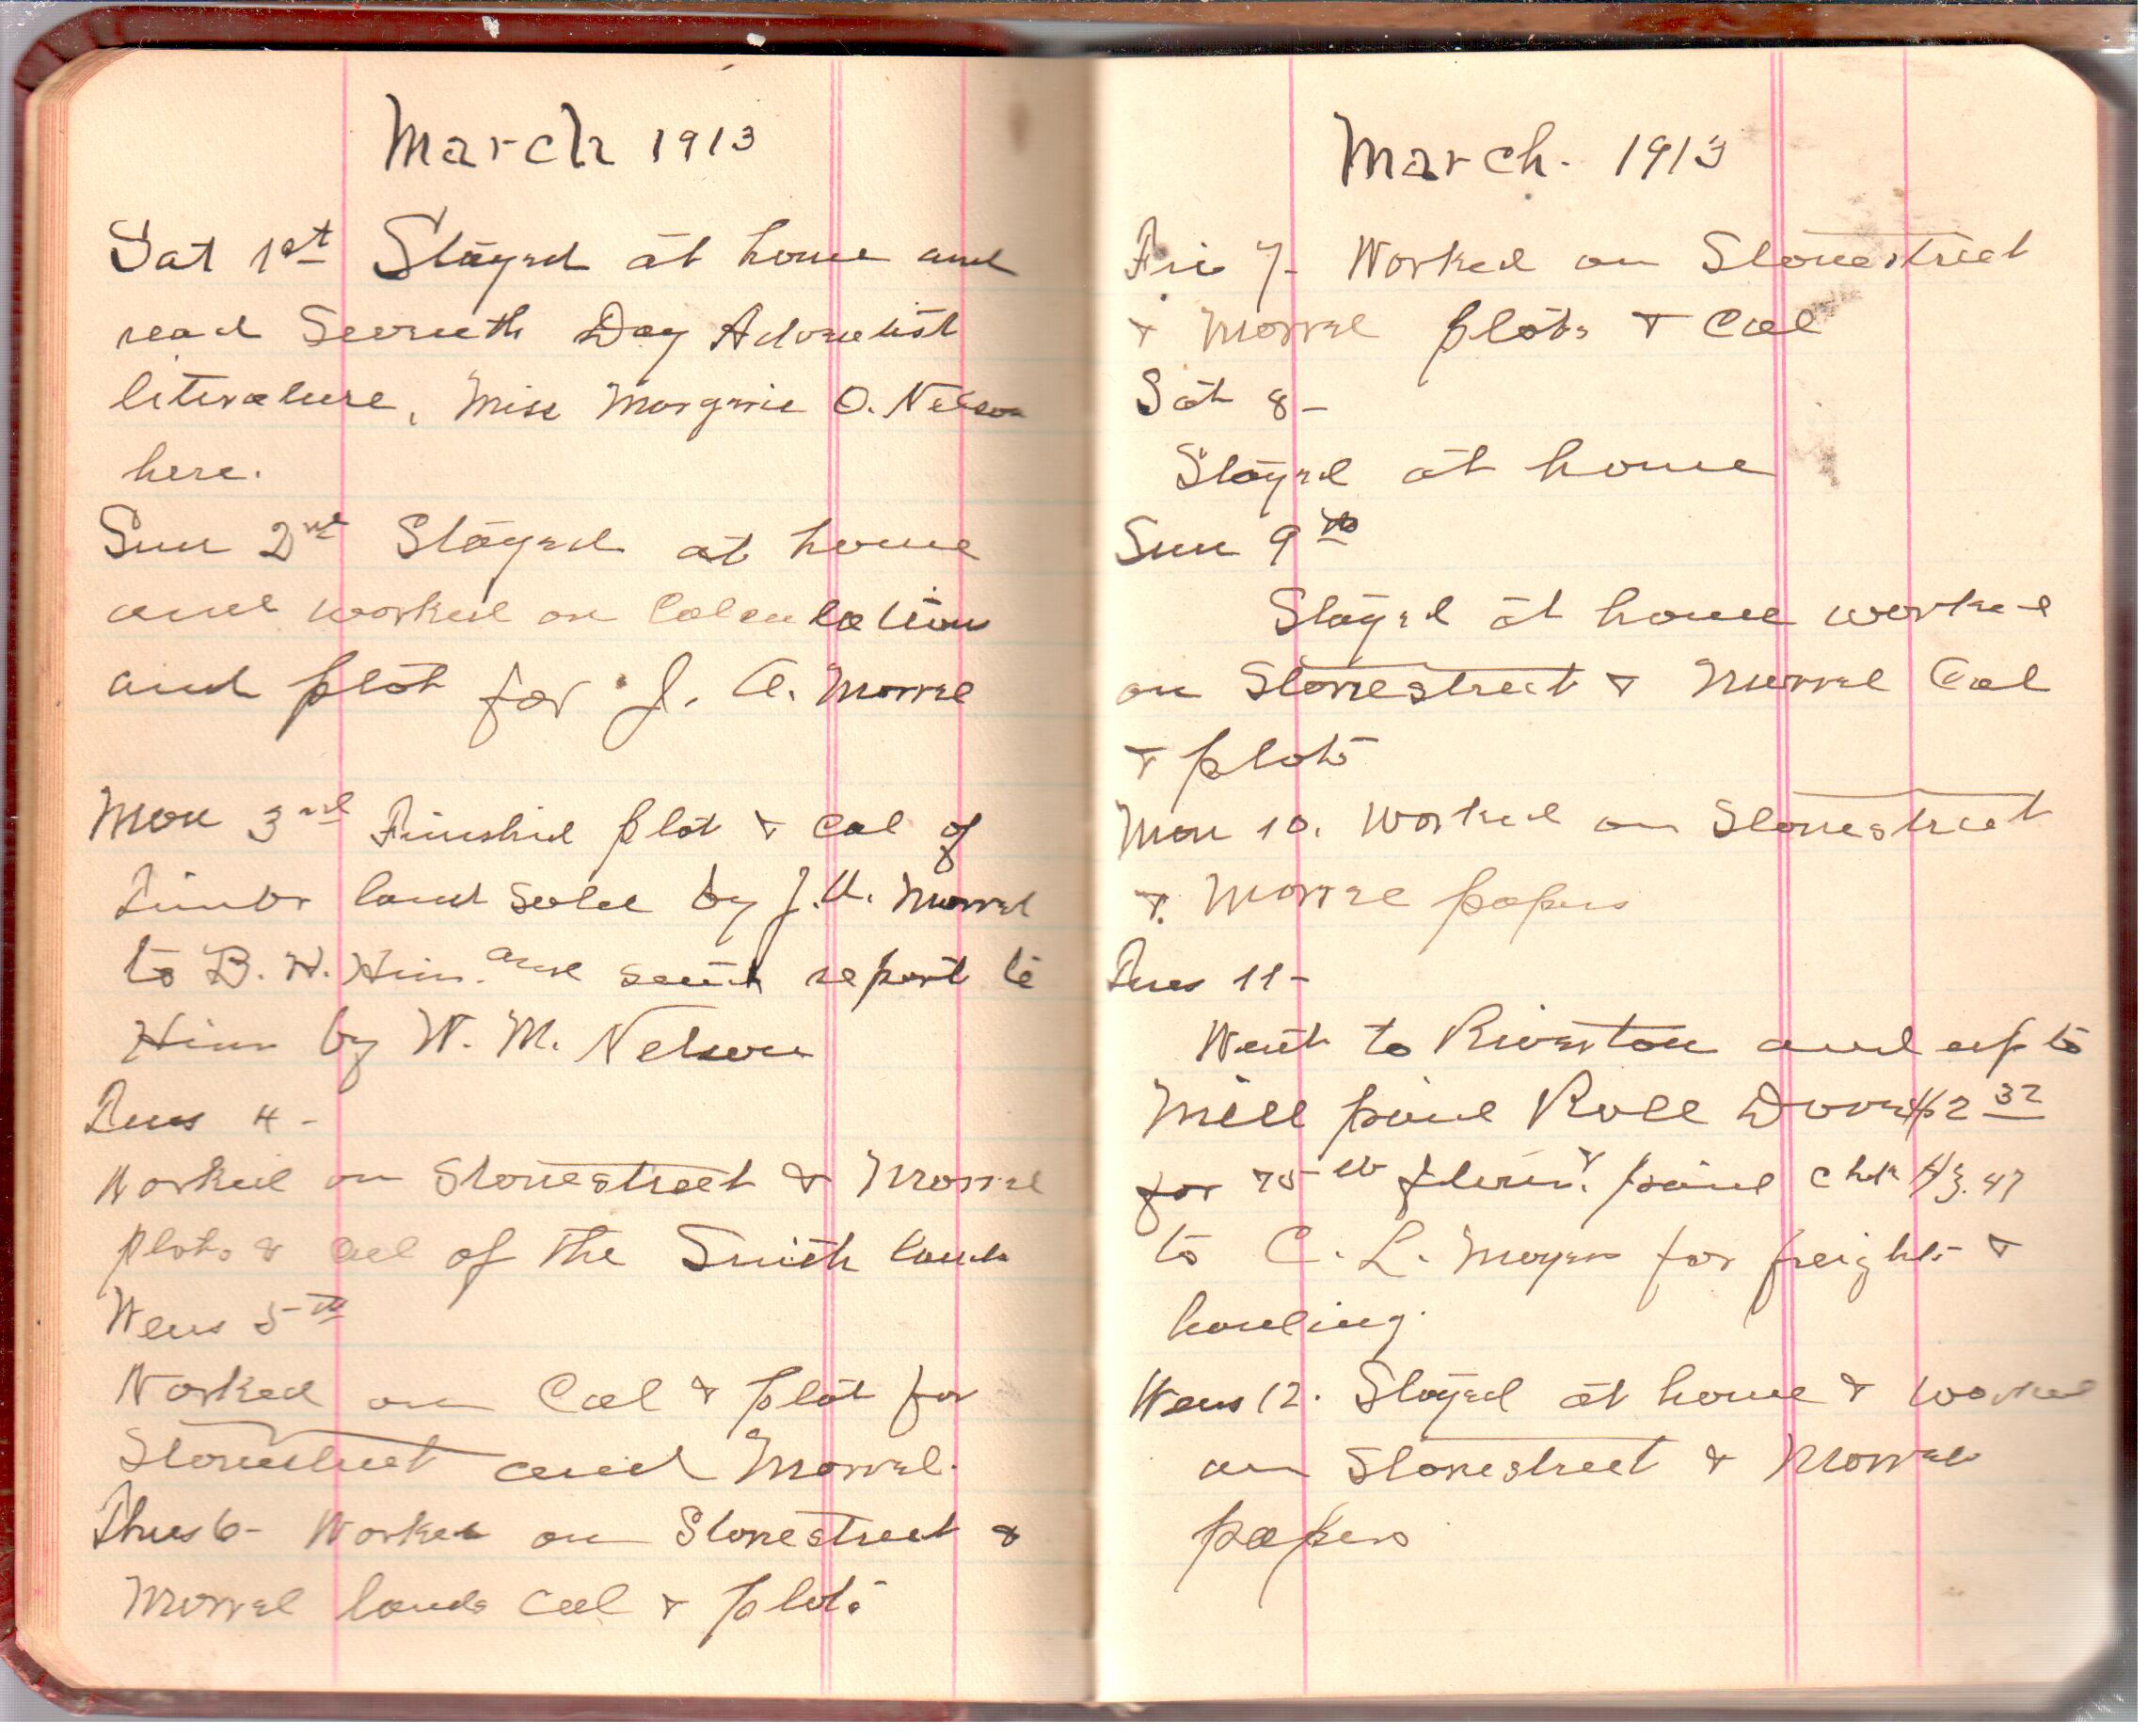 March 1913
Sat 1st Stayed at home and
read Seventh Day Adventist
literature, Miss Margerie O. Nelson
here.
Sun 2nd Stayed at home
and worked on Calculation
and plot for J. A. Morrel
Mon 3rd Finishid plot & Cal of
Timbr land sold by J. A. Morrel
to B. H. Hinn. and sent report to
Hinn by W. M. Nelson
Tues 4-
Worked on Stonestreet & Morrel
plots & Cal of the Smith land
Wens 5th
Worked on Cal & plot for
Stonestreet and Morrel.
Thus 6- Worked on Stonestreet &
Morrel lands Cal & plots
March. 1913
Fri 7- Worked on Stonestreet
& Morrel plots & Cal
Sat 8-
Stayed at home
Sun 9th
Stayed at home worked
on Stonestreet & Morrel Cal
& plots
Mon 10. Worked on Stonestreet
& Morrel papers
Tues 11-
Went to Riverton and up to
Mill paid Roll Doors $2 32
for 75 lb paid chk $3.47
to C. L. Moyers for freight &
houling.
Wens 12. Stayed at home & worked
on Stonestreet & Morrel
papers